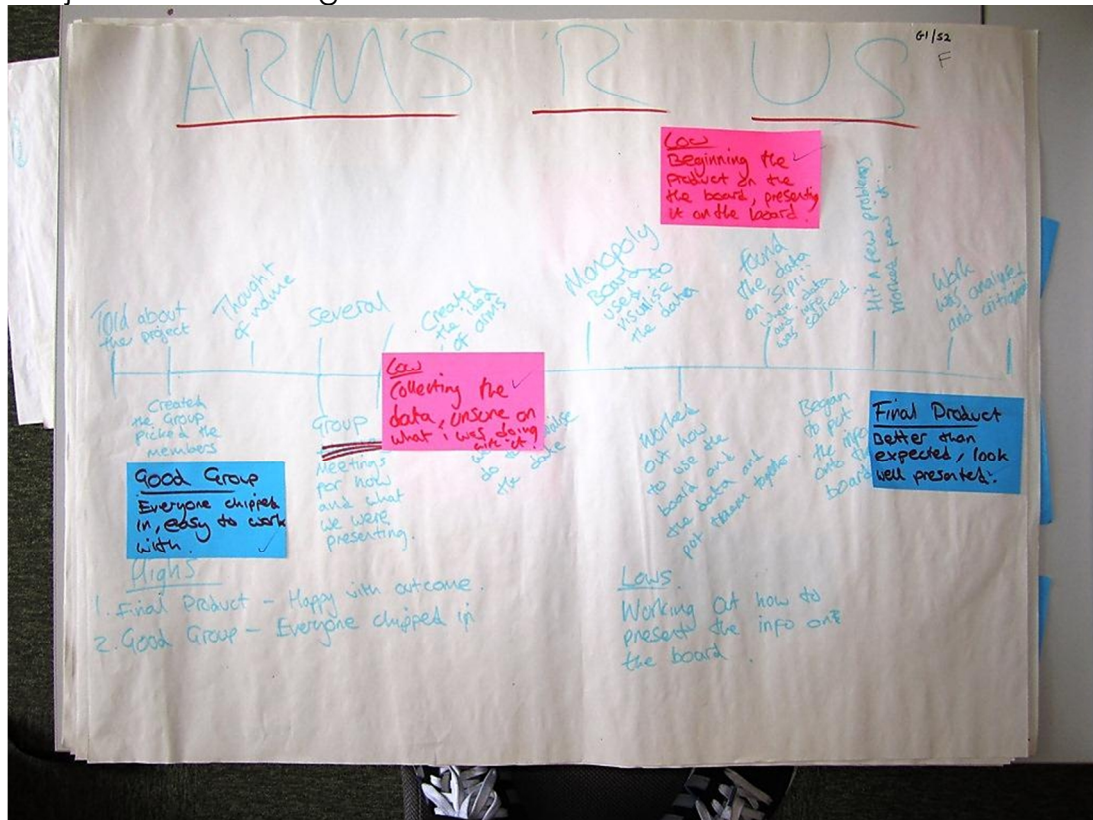 ARM'S 'R' US
G1/S2
F
Low
Beginning the
product on the
the board, presenting
it on the board.
Told about
the project
Thought
of name
Several
Created
the idea
of arms
Monopoly
Board
used to
visualise
the data
found
the data
on Sipri
where data
and info
was sourced.
Hit a few problems
Worked
it
Work
was analysed
and critiqued
Created
the Group
picked the
members
Group
Meetings
for how
and what
we were
presenting.
Low
Collecting the
data, unsure on
what i was doing
with it.
to
do
the
Worked
out how
to use the
board and
the data and
put them together.
Began
to put
the info
onto the
board
Final Product
Better than
expected, look
well presented.
Good Group
Everyone chipped
in, easy to work
with.
Highs
1. Final Product - Happy with outcome.
2. Good Group - Everyone chipped in
Lows
Working Out how to
present the info on
the board.